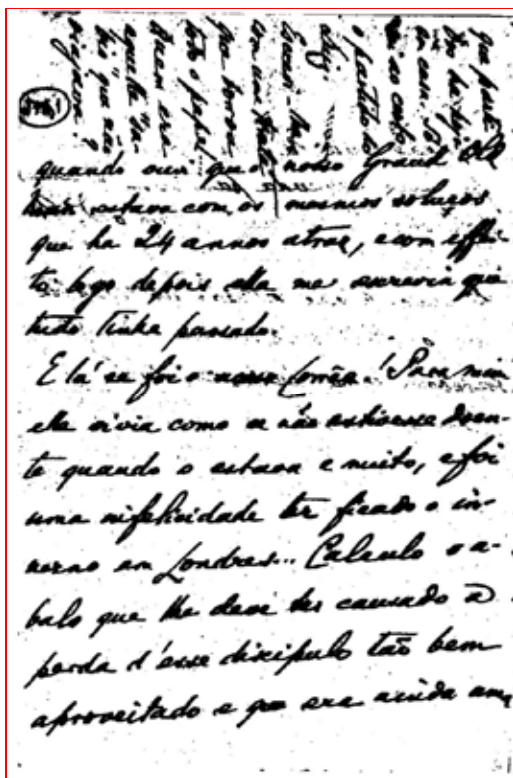 que parti-
em casa. Só
o partido do
Escrevi-lhe
com uma tinta
que borrou
todo o papel
Quem era
aquella Sa-
que não
viajava?
quando ouvi que o nosso Grand Old
Man estava com os mesmos soluços
que ha 24 annos atraz, e com effei-
to logo depois ella me escrevia que
tudo tinha passado.
E lá se foi o nosso Corrêa! Para mim
elle vivia como se não estivesse doen-
te quando o estava e muito, e foi
uma infelicidade ter ficado o in-
verno em Londres... Calculo o a-
balo que lhe deve ter causado a
perda d'esse discipulo tão bem
aproveitado e que era ainda um